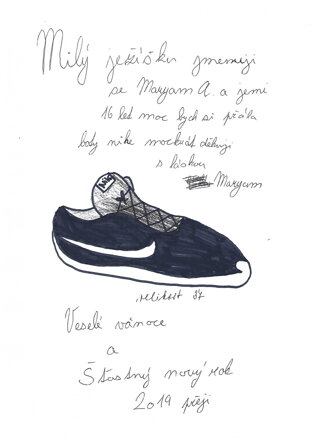 Milý ježíšku jmenuji
se Maryam A. a jemi
16 let moc bych si přála
boty nike mockrát děkuji
s láskou
Maryam
velikost 37
Veselé vánoce
a
Štastný nový rok
2019 přeji